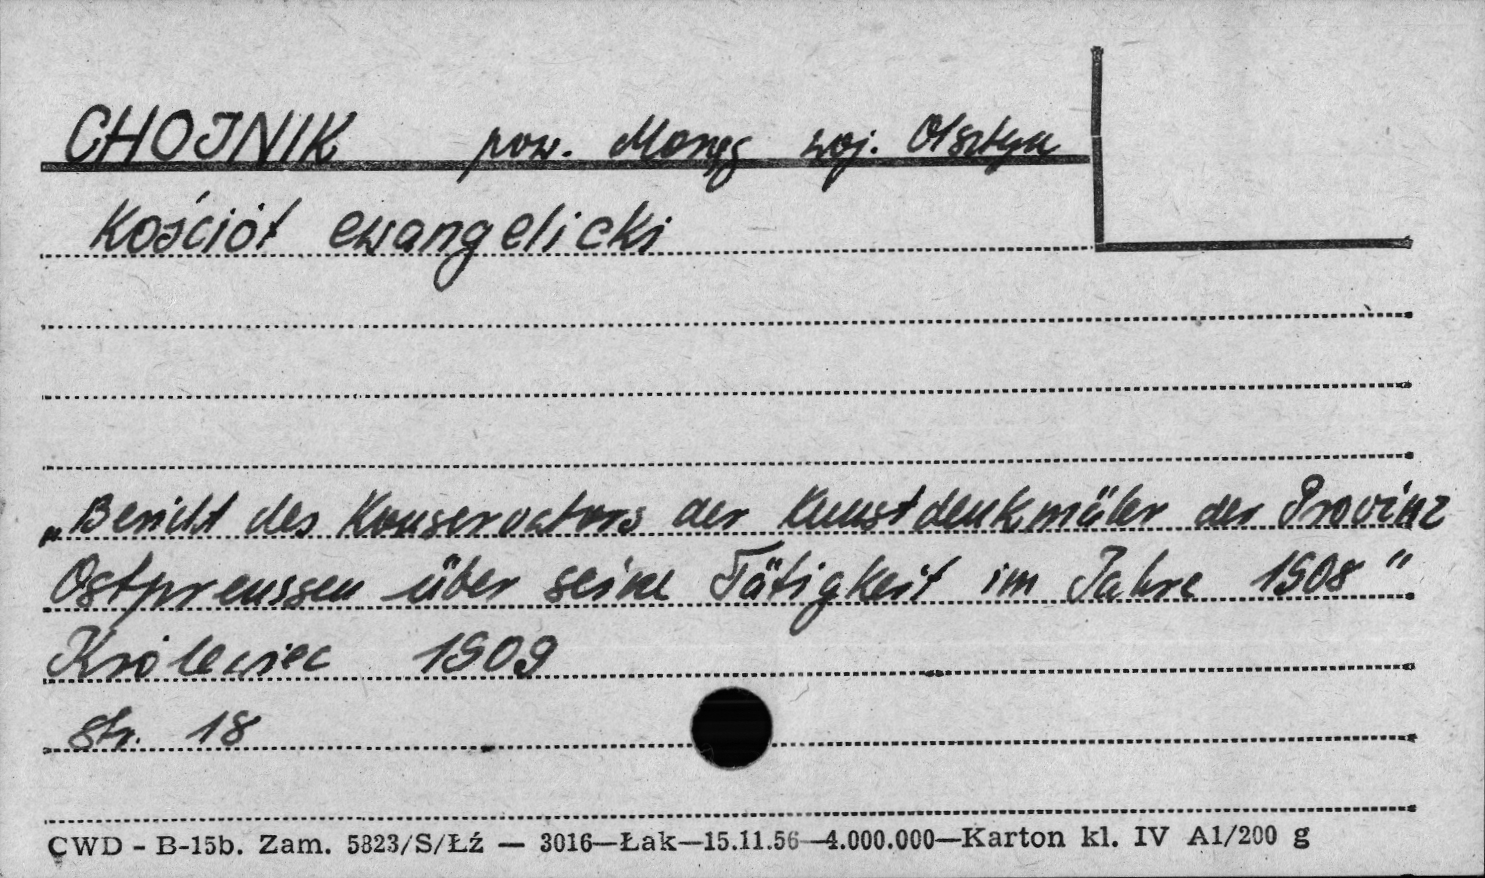 CHOJNIK pow. Morąg woj. Olsztyn
Kościół ewangelicki
„Bericht des Konservators der Kunstdenkmäler der Provinz
Ostpreussen über seine Tätigkeit im Jahre 1908"
Królewiec 1909
str. 18
CWD - B-15b. Zam. 5823/S/Łź — 3016—Łak—15.11.56—4.000.000—Karton kl. IV A1/200 g